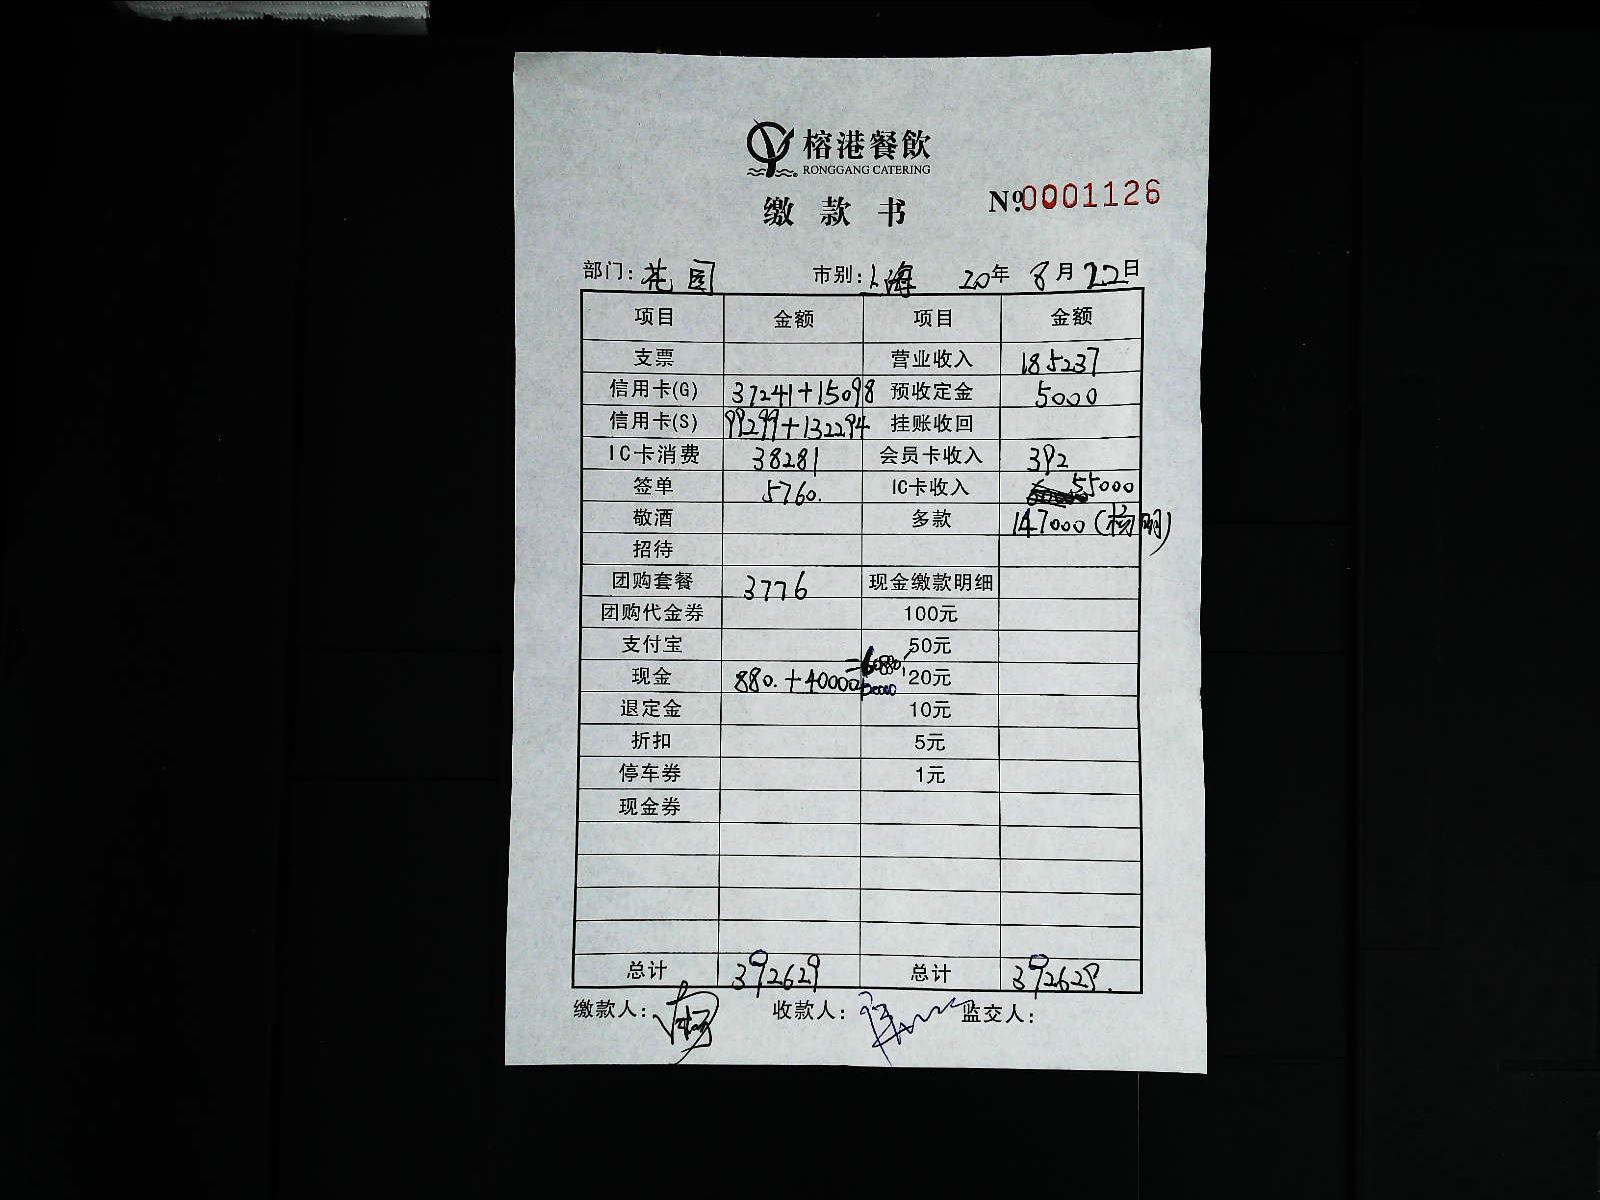 榕港餐飲
RONGGANG CATERING
缴款书
№0001126
部门：花园 市别：上海 20年 8月22日
项目 金额 项目 金额
支票 营业收入 185237
信用卡(G) 37241+15098 预收定金 5000
信用卡(S) 99299+132294 挂账收回
IC卡消费 38281 会员卡收入 392
签单 5760. IC卡收入 55000
敬酒 多款 147000(杨丽)
招待
团购套餐 3776 现金缴款明细
团购代金券 100元
支付宝 50元
=60880.
现金 880.+40000 20元
20000
退定金 10元
折扣 5元
停车券 1元
现金券
总计 392629 总计 392629.
缴款人： 收款人： 监交人：